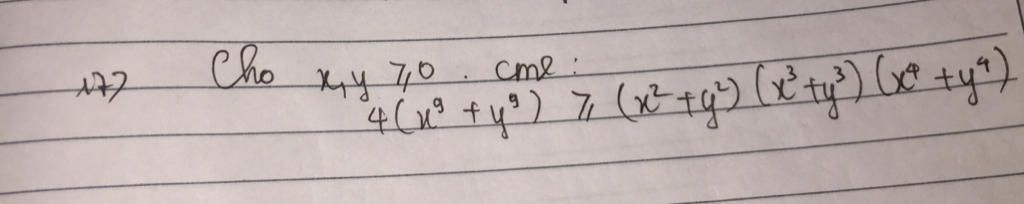 177) Cho x, y ⩾ 0 . cmr :
4(x⁹ + y⁹) ⩾ (x² + y²) (x³ + y³) (x⁴ + y⁴)